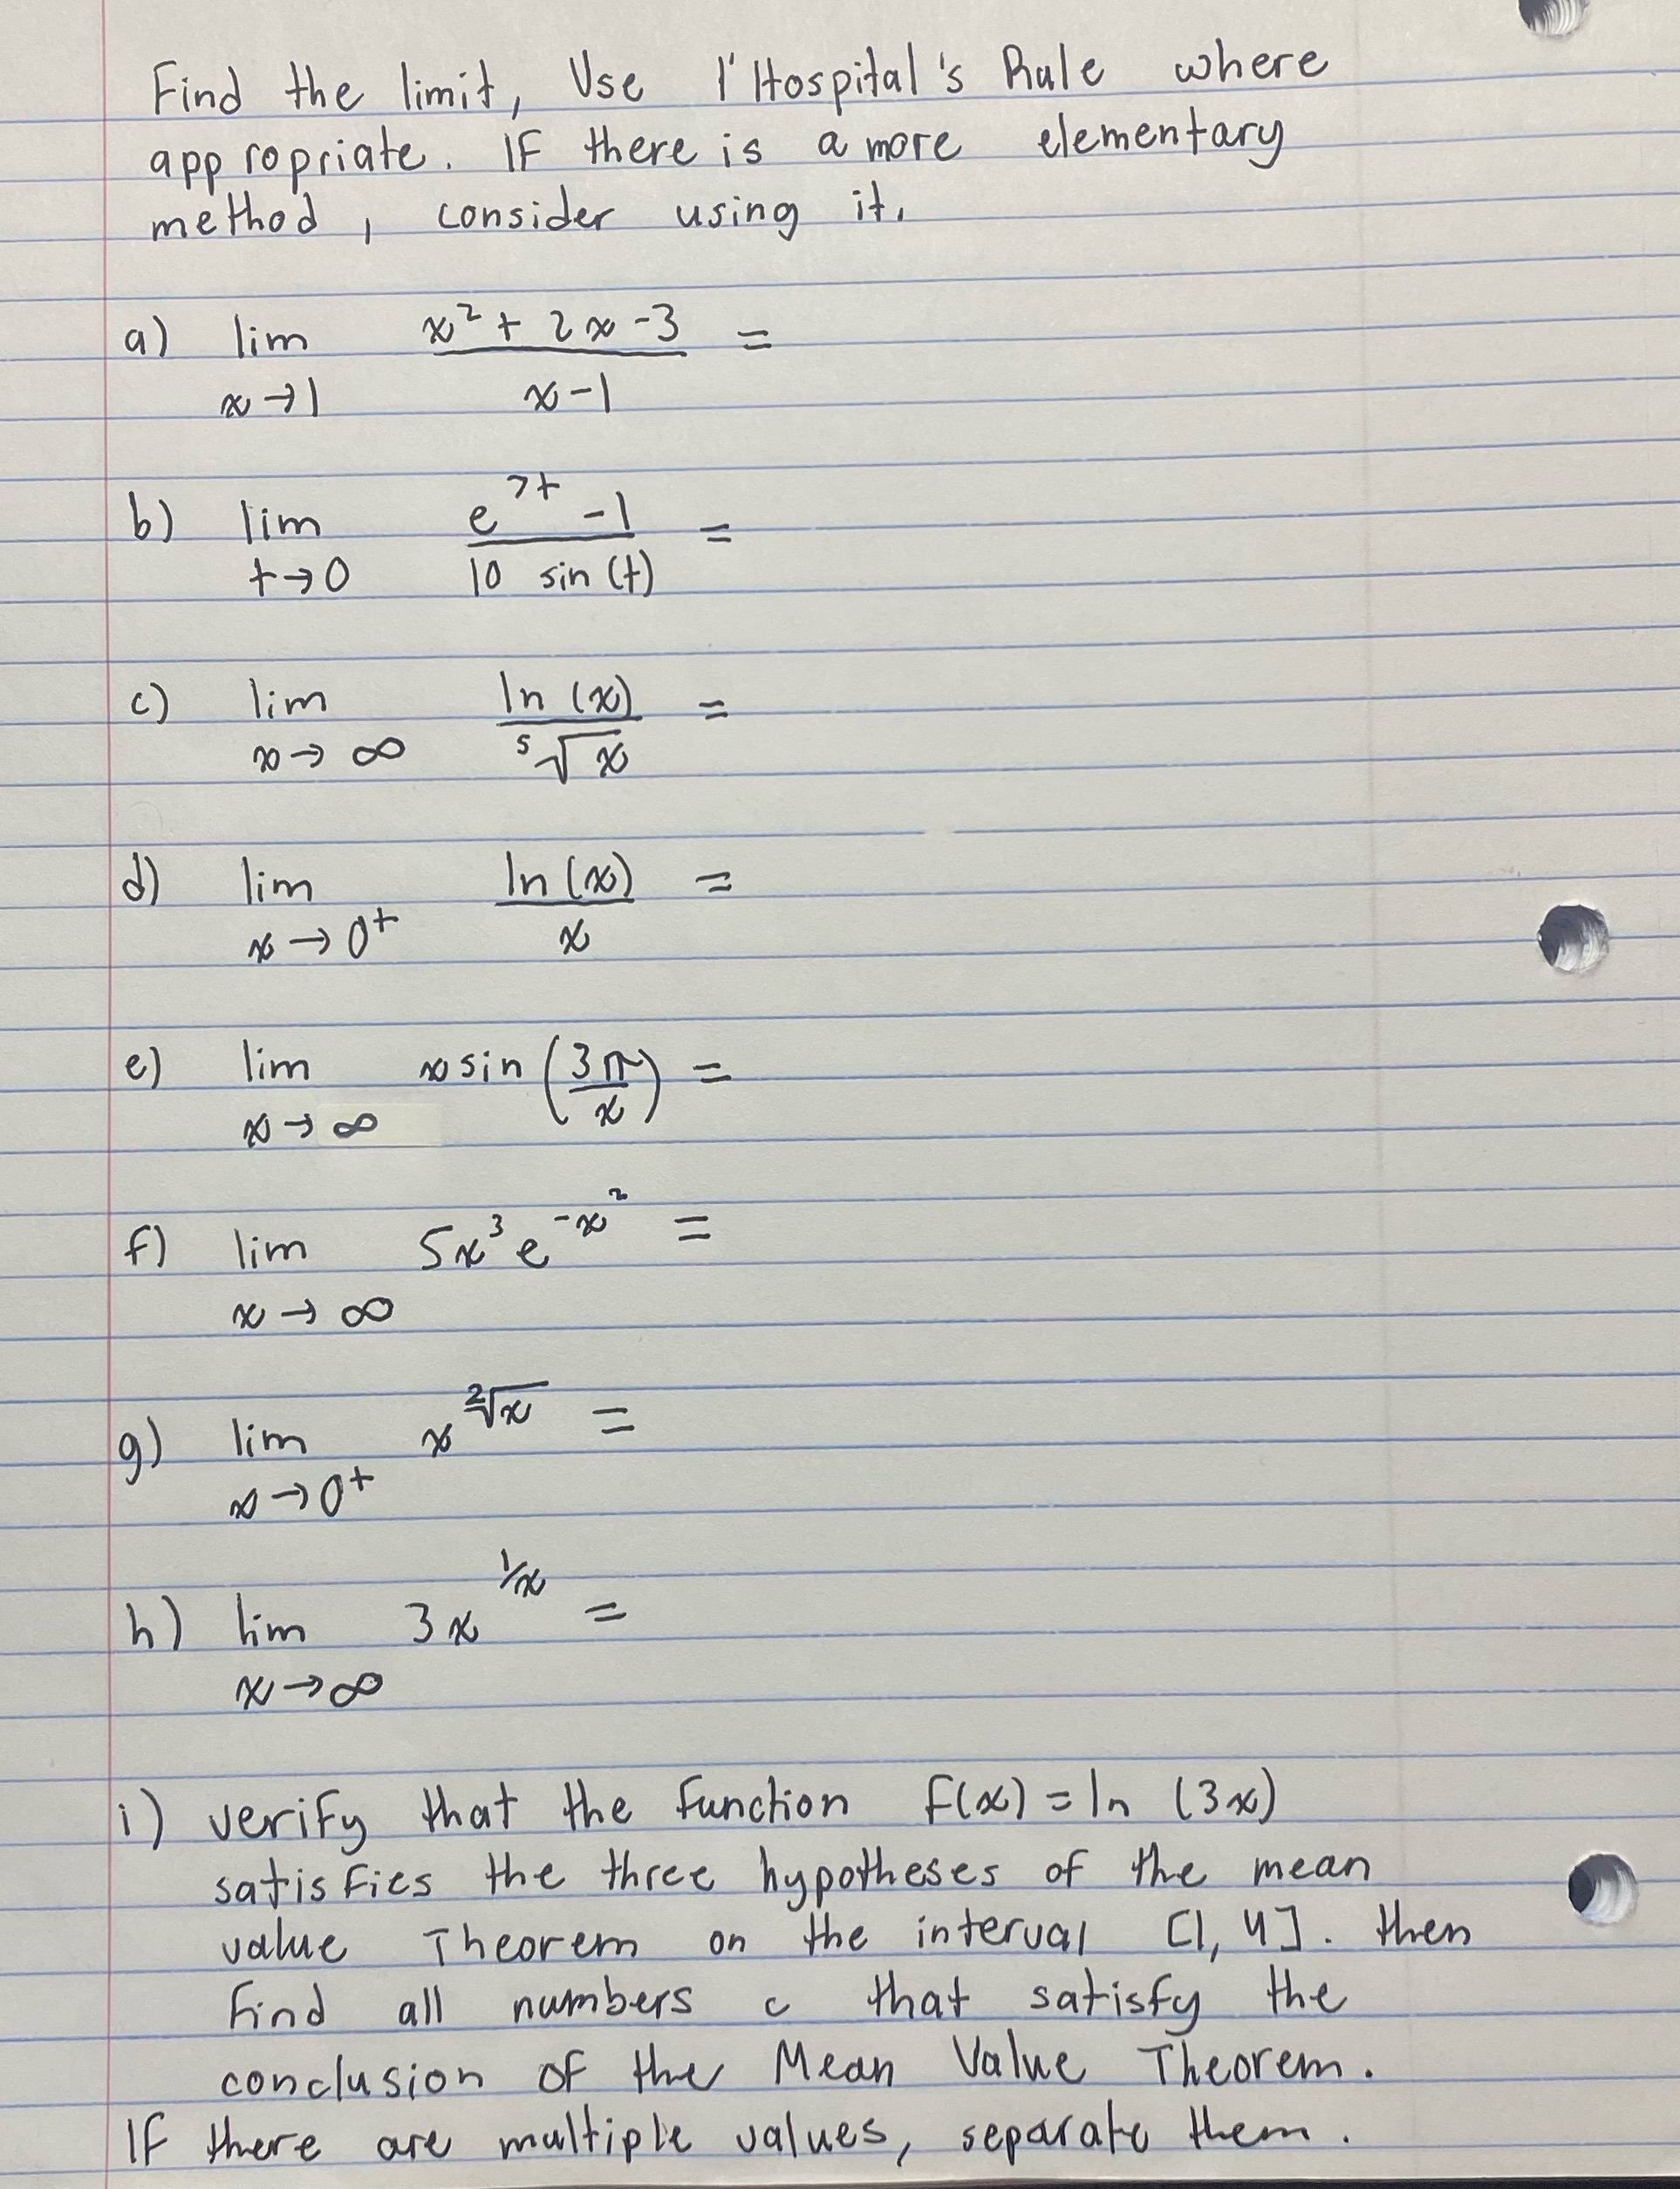 Find the limit, Use l'Hospital's Rule where
appropriate. IF there is a more elementary
method, consider using it.
a) lim x→1 (x² + 2x - 3)/(x - 1) =
b) lim t→0 (e^(7t) - 1)/(10 sin (t)) =
c) lim x→∞ ln (x)/⁵√x =
d) lim x→0⁺ ln (x)/x =
e) lim x→∞ x sin (3π/x) =
f) lim x→∞ 5x³ e^(-x²) =
g) lim x→0⁺ x^(²√x) =
h) lim x→∞ 3x^(1/x) =
i) verify that the function f(x) = ln (3x)
satisfies the three hypotheses of the mean
value Theorem on the interval [1, 4]. then
find all numbers c that satisfy the
conclusion of the Mean Value Theorem.
If there are multiple values, separate them.